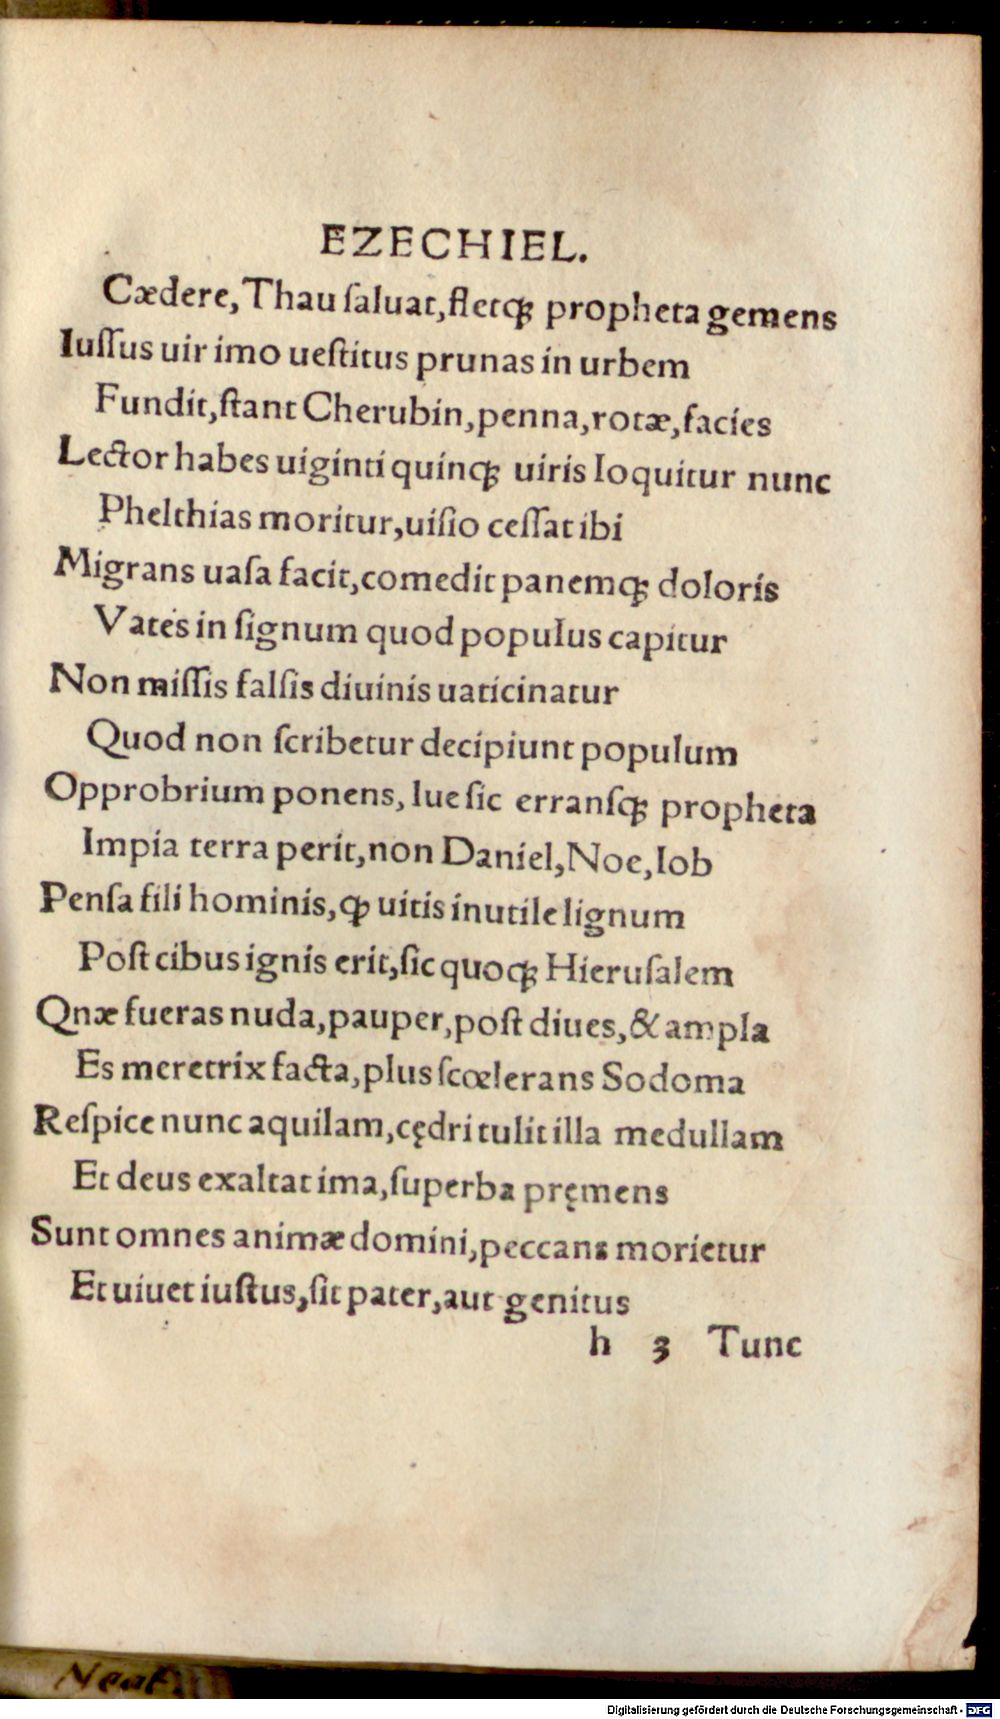 EZECHIEL.
Cædere, Thau ſaluat, fletꝗ́ꝫ propheta gemens
Iuſſus uir imo ueſtitus prunas in urbem
Fundit, ſtant Cherubin, penna, rotæ, facies
Lector habes uiginti quinꝗꝫ uiris loquitur nunc
Phelthias moritur, uiſio ceſſat ibi
Migrans uaſa facit, comedit panemꝗꝫ doloris
Vates in ſignum quod populus capitur
Non miſſis falſis diuinis uaticinatur
Quod non ſcribetur decipiunt populum
Opprobrium ponens, lue ſic erranſꝗꝫ propheta
Impia terra perit, non Daniel, Noe, Iob
Penſa fili hominis, ꝙ uitis inutile lignum
Poſt cibus ignis erit, ſic quoꝗꝫ Hieruſalem
Qnæ fueras nuda, pauper, poſt diues, & ampla
Es meretrix facta, plus ſcœlerans Sodoma
Reſpice nunc aquilam, cędri tulit illa medullam
Et deus exaltat ima, ſuperba pręmens
Sunt omnes animæ domini, peccans morietur
Et uiuet iuſtus, ſit pater, aut genitus
h 3 Tunc
Neat.
Digitalisierung gefördert durch die Deutsche Forschungsgemeinschaft - DFG